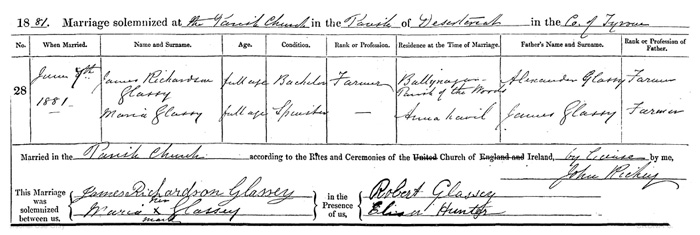 1881. Marriage solemnized at the Parish Church in the Parish of Desertcreat in the Co. of Tyrone
No. When Married. Name and Surname. Age. Condition. Rank or Profession. Residence at the Time of Marriage. Father's Name and Surname. Rank or Profession of Father.
28 June 1881 James Richardson Glassy full age Bachelor Farmer Parish of the Woods Alexander Glassy Farmer
Maria Glassy full age Spinster — Annahavil James Glassy Farmer
Married in the Parish Church according to the Rites and Ceremonies of the United Church of England and Ireland, by License by me,
John Richey
This Marriage was solemnized between us, James Richardson Glassey in the Presence of us, Robert Glassey
Maria her x mark Glassey Eliza Hunter